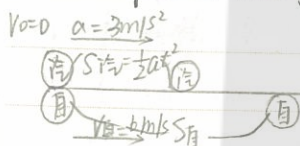 V₀=0 a=3m/s²
汽 S汽=½at² 汽
自 自
V自=6m/s S自